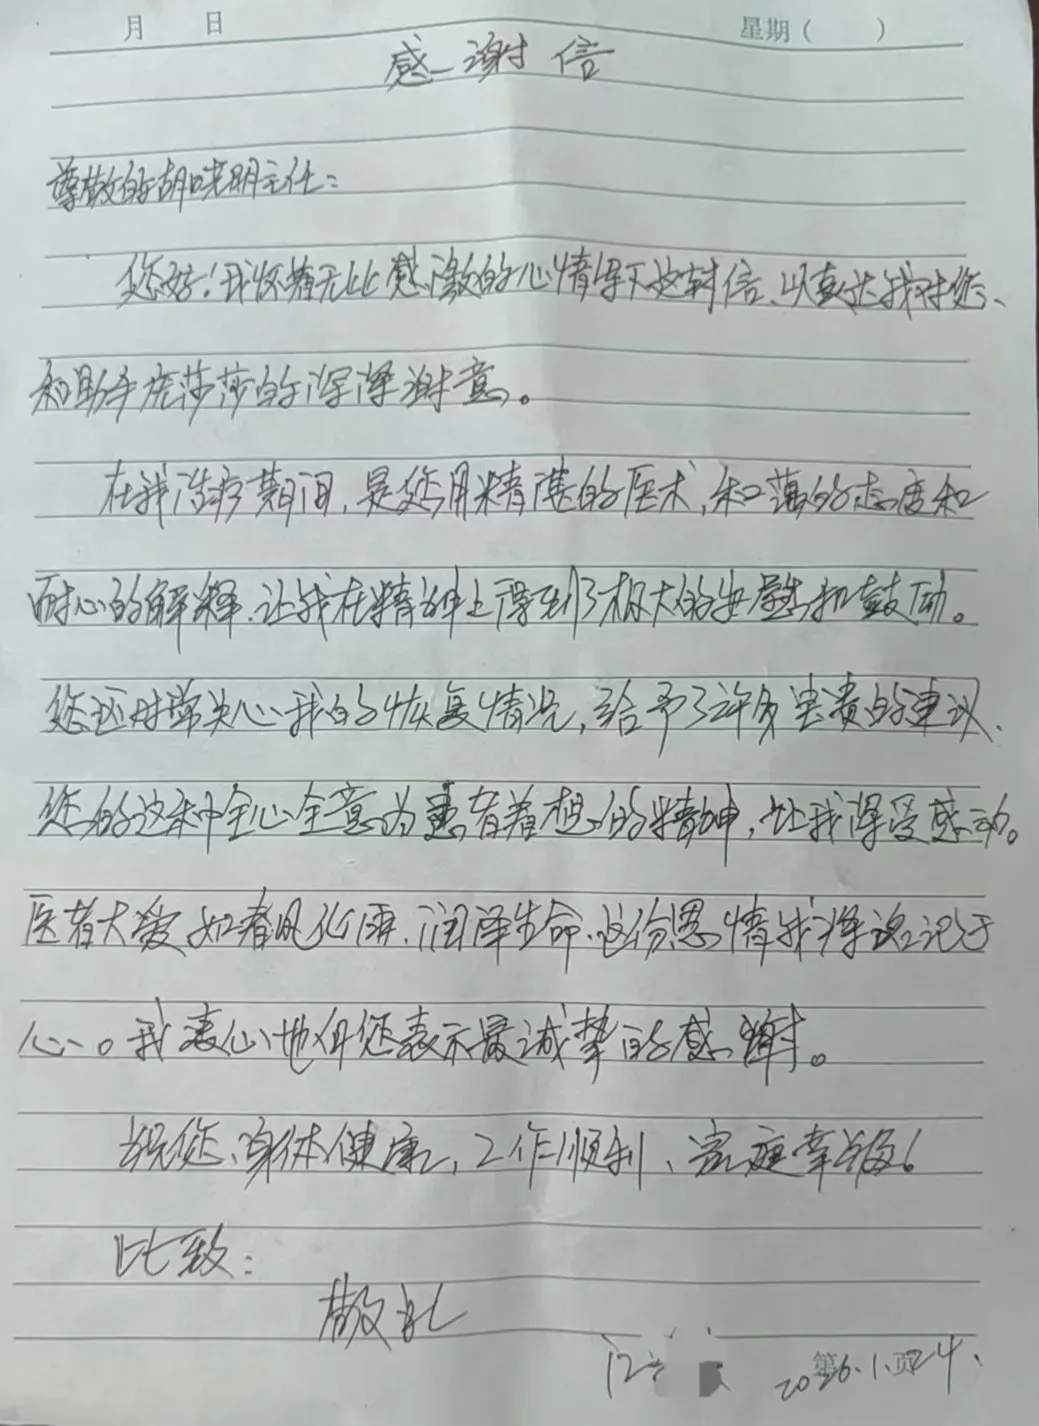 月 日 星期( )
感谢信
尊敬的胡晓明主任:
您好!我怀着无比感激的心情写下这封信、以表达我对您、
和助手庞莎莎的深深谢意。
在我治疗期间,是您用精湛的医术,和蔼的态度和
耐心的解释、让我在精神上得到了极大的安慰和鼓励。
您还时常关心我的恢复情况,给予了许多宝贵的建议、
您的这种全心全意为患者着想的精神,让我深受感动。
医者大爱如春风化雨、润泽生命、这份恩情我深深记于
心。我衷心地向您表示最诚挚的感谢。
祝您、身体健康、工作顺利、家庭幸福!
比致:
敬礼
第 页
2026.1.24、